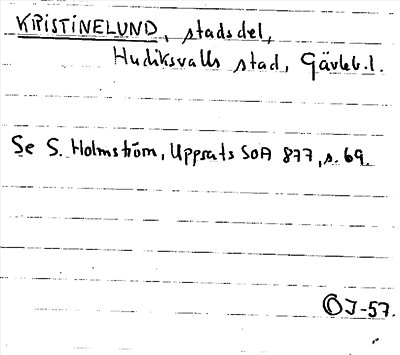 KRISTINELUND, stadsdel,
Hudiksvalls stad, Gävleb. l.
Se S. Holmström, Uppsats SOA 877, s. 69.
OJ-57.